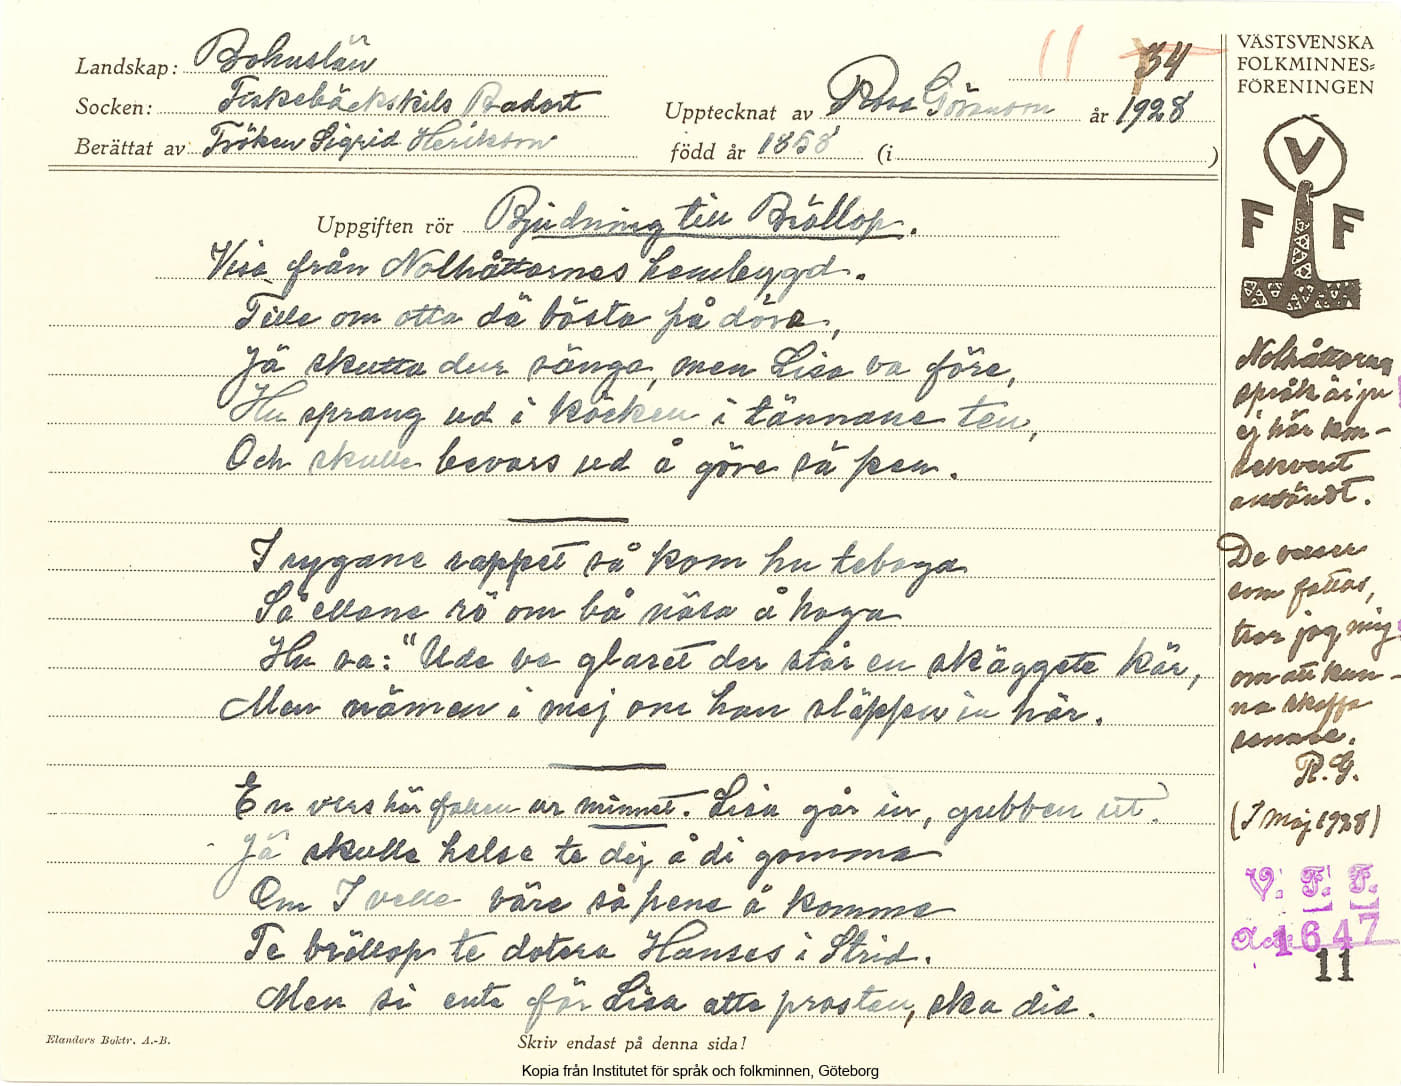 Landskap: Bohuslän
Socken: Fiskebäckskils Badort
Berättat av Fröken Sigrid Henikson
Upptecknat av Rosa Göranson år 1928
född år 1858 (i )
11
34
VÄSTSVENSKA
FOLKMINNES=
FÖRENINGEN
V
F F
Uppgiften rör Bjudning till Bröllop.
Visa från Nolhåttarnes hembygd.
Tille om otta dä bösta på döra,
Jä skutta dur sänga, men Lisa va före,
Hu sprang ud i köcken i tännane ten,
Och skulle bevars ud å göre sä pen.
I rygane rappet så kom hu teboga
Så ellane rö om bå näsa å hoga
Hu sa: "Ude ve glaset der står en skäggete kär,
Men nämen i mej om han släppen in här.
En vers här fallen ur minnet. Lisa går in, gubben ut.
Jä skulle helse te dej å di gomma
Om I velle väre så pene å komma
Te bröllop te dotera Hanses i Strid.
Men si ente för Lisa atte prosten, ska did.
Nolhåttarnas
språk är ju
ej här kon-
sekvent
användt.
De verser
som fattas,
tror jag mig
om att kun-
na skaffa
senare.
R. G.
(I Maj 1928)
V. F. F.
Acc. 1647
11
Elanders Boktr. A.-B.
Skriv endast på denna sida!
Kopia från Institutet för språk och folkminnen, Göteborg